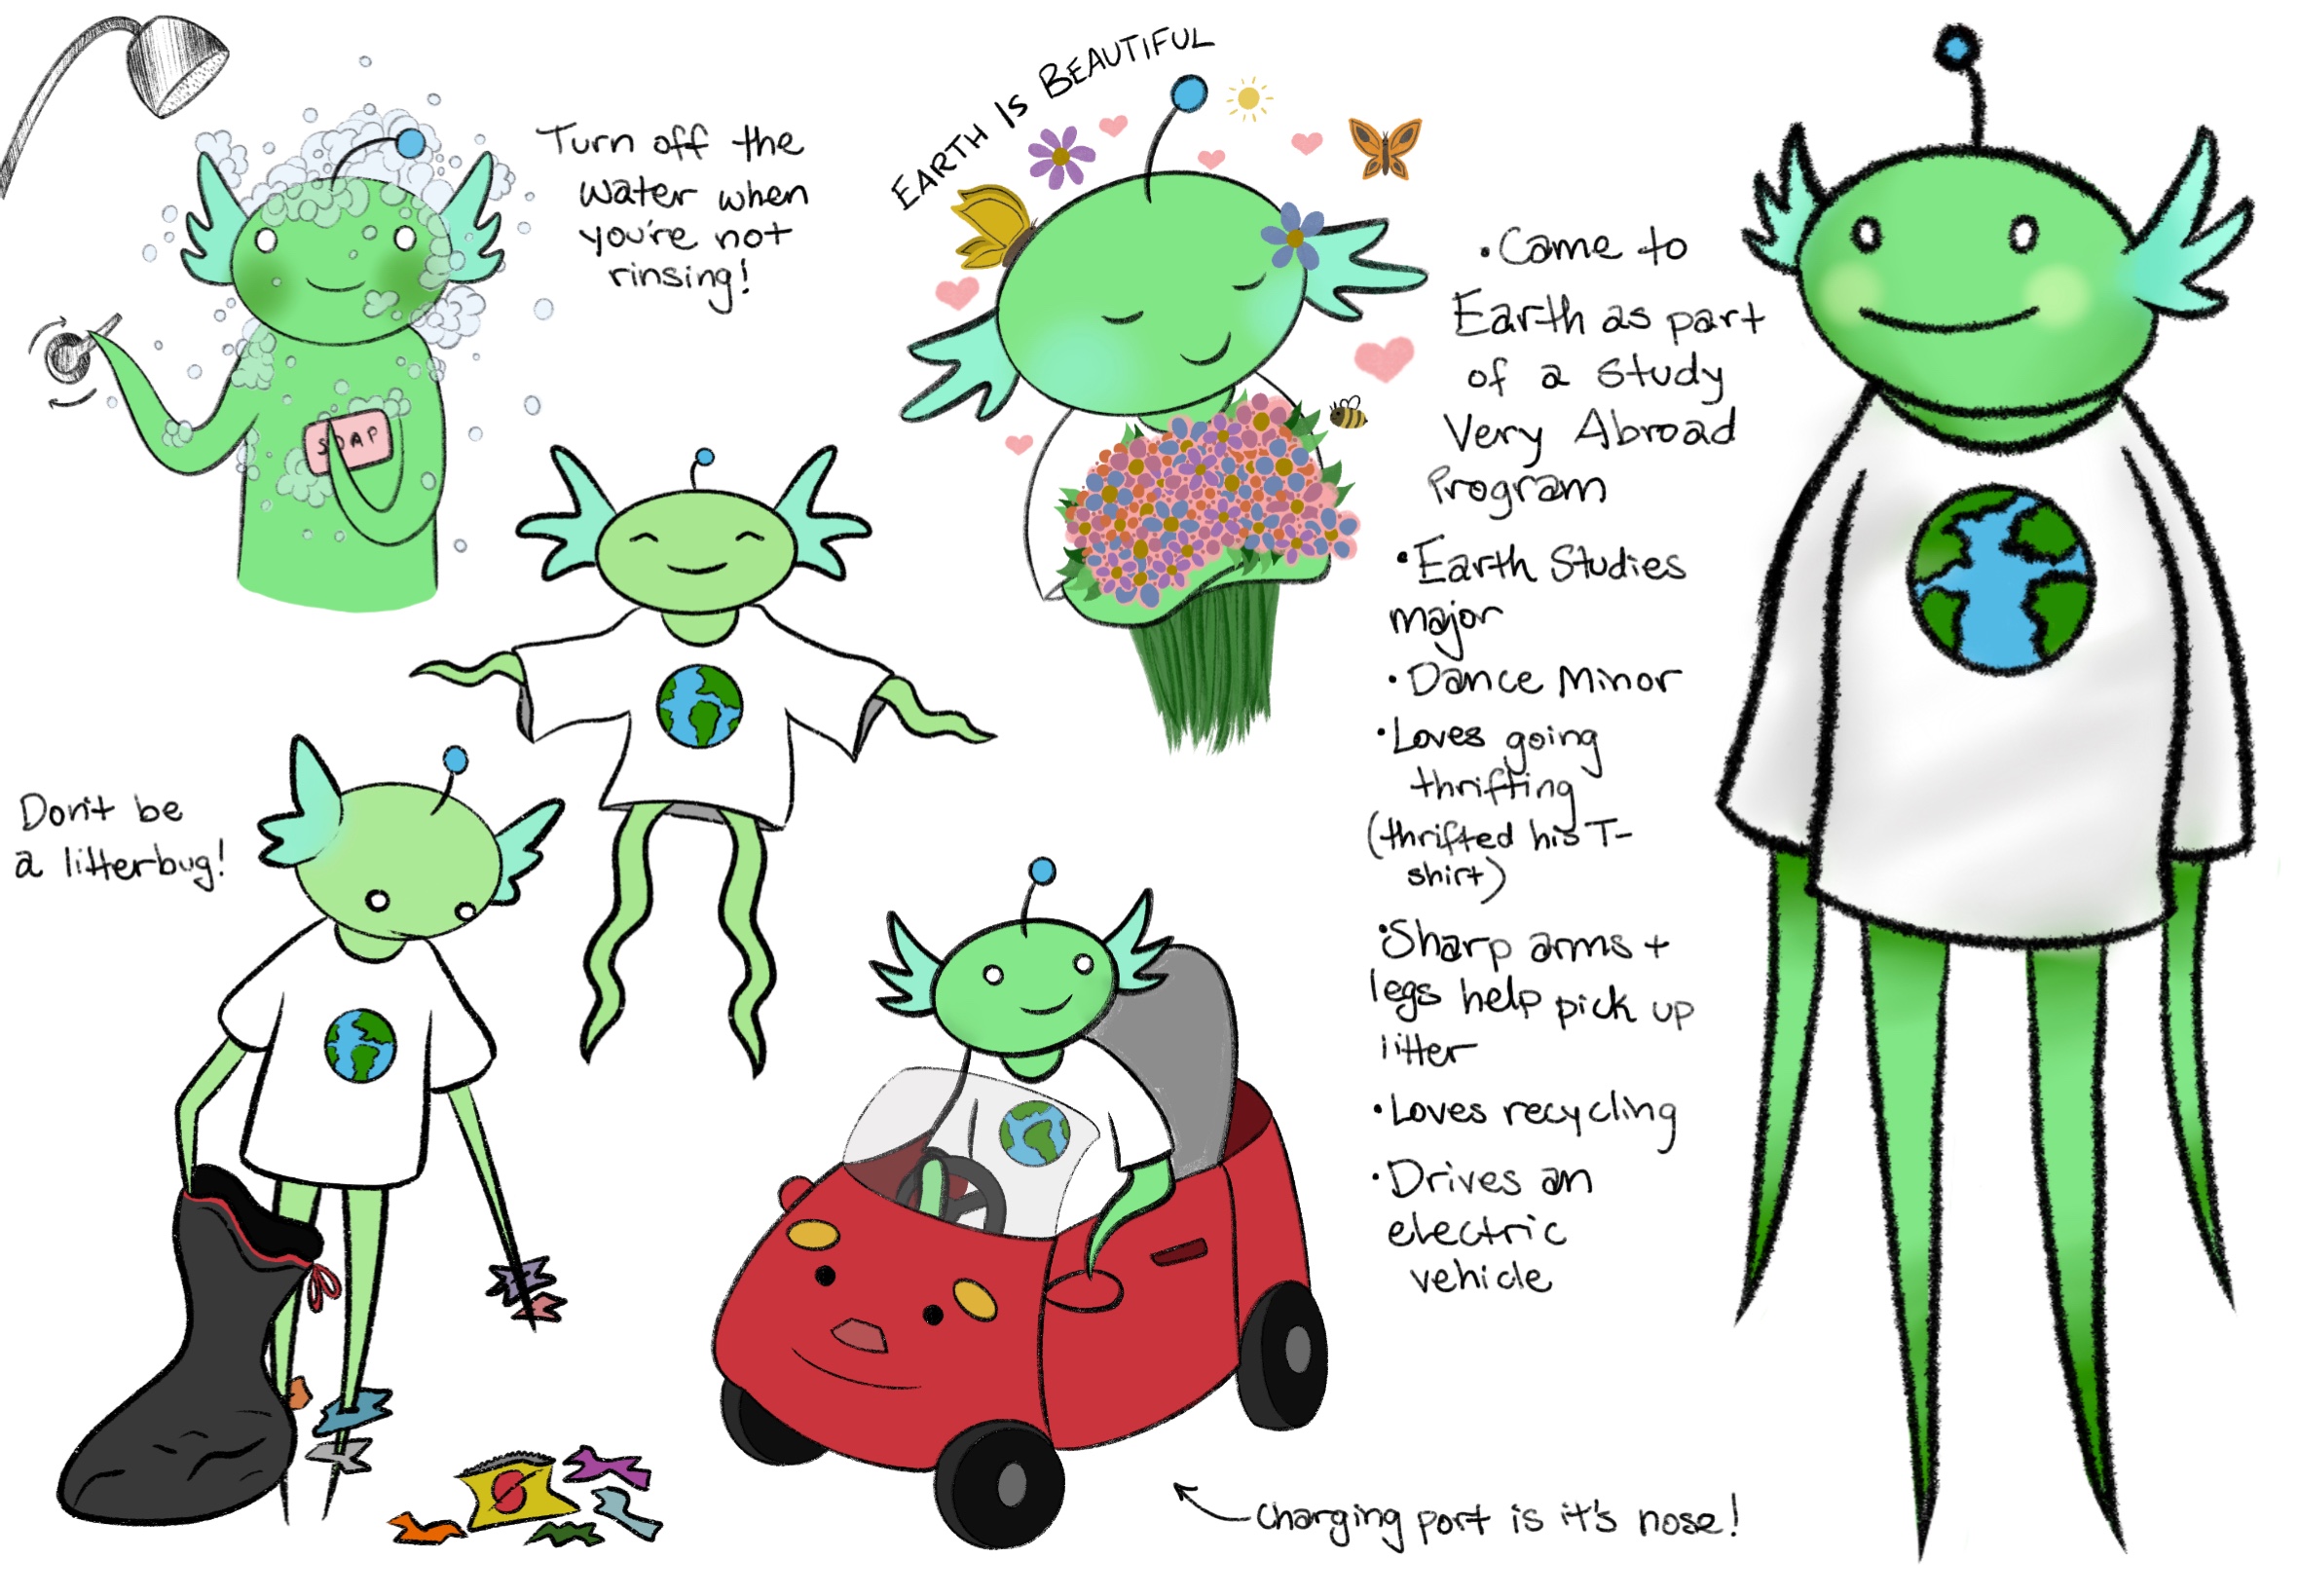 Turn off the
water when
you're not
rinsing!
SOAP
EARTH IS BEAUTIFUL
• Came to
Earth as part
of a Study
Very Abroad
Program
• Earth Studies
major
• Dance Minor
• Loves going
thrifting
(thrifted his T-
shirt)
• Sharp arms +
legs help pick up
litter
• Loves recycling
• Drives an
electric
vehicle
Don't be
a litterbug!
Charging port is it's nose!